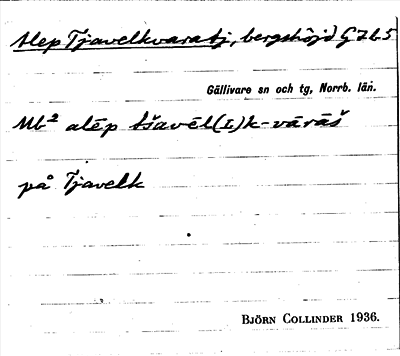 Alep Tjavelkvaratj, bergshöjd G 7 b 5
Gällivare sn och tg, Norrb. län.
Ub² alēp tšavēl(ɪ)k-vārāš
på Tjavelk
BJÖRN COLLINDER 1936.